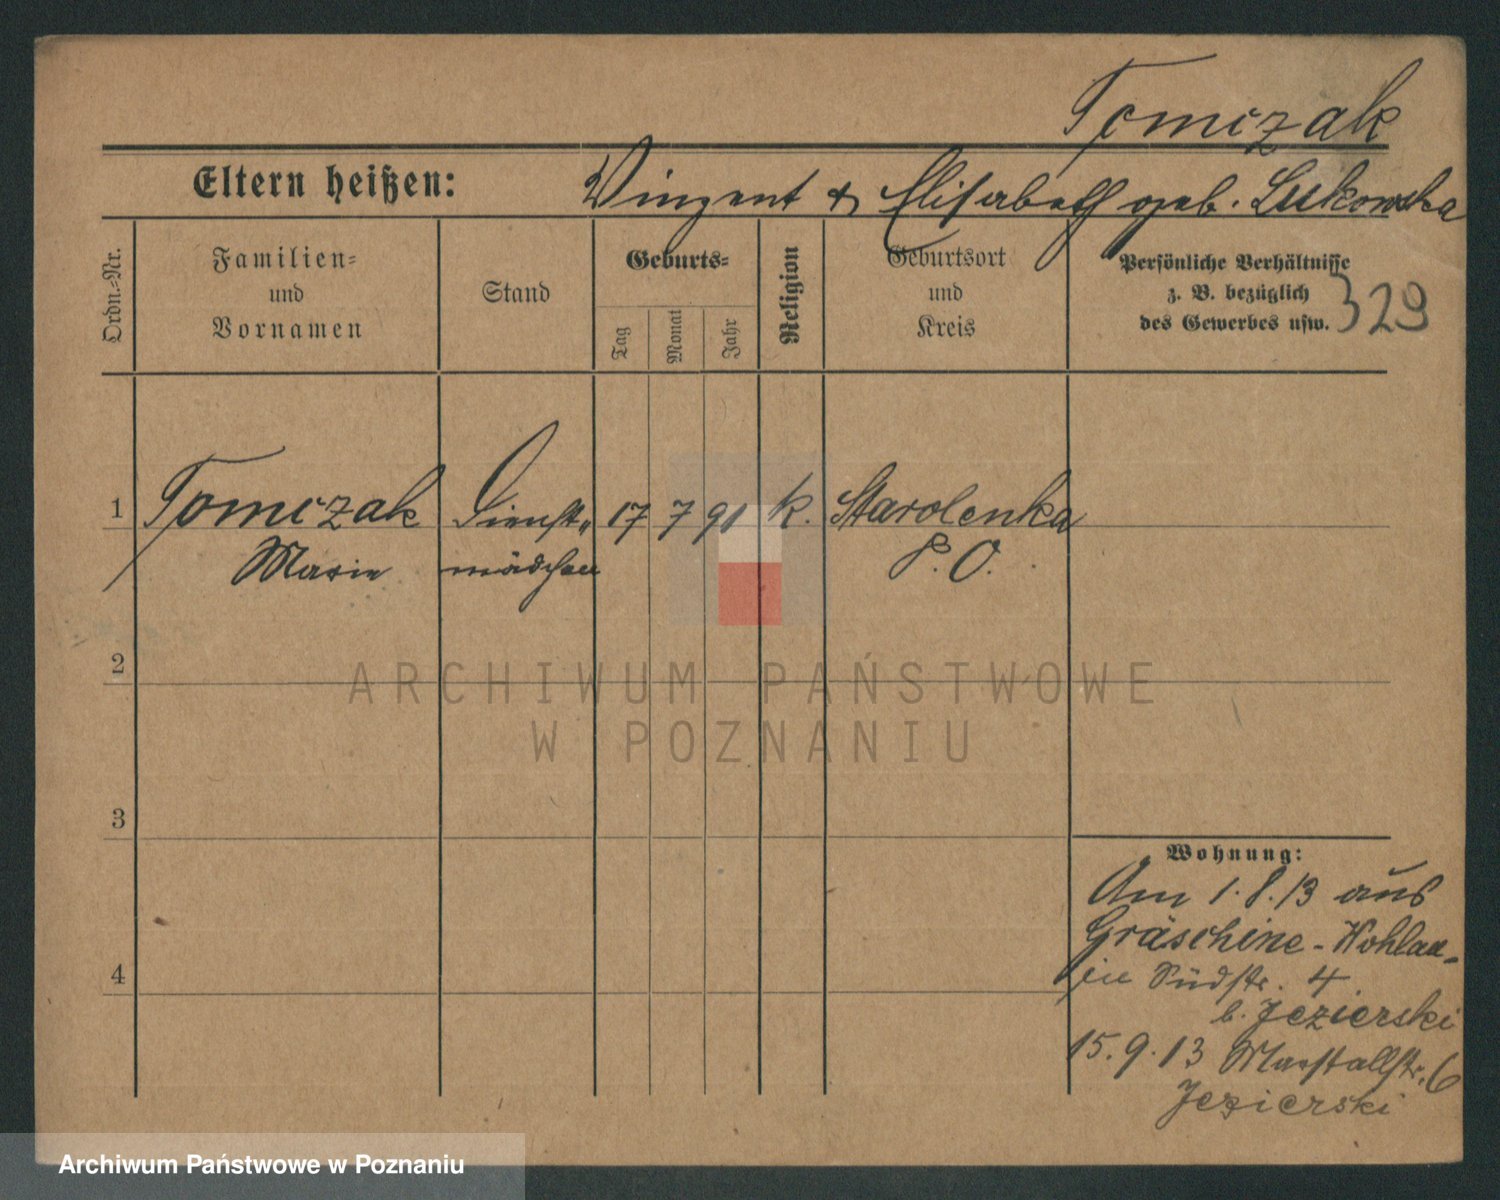 Tomczak
Eltern heißen: Vinzent & Elisabeth geb. Lukowska
Ordn.-Nr.
Familien-
und
Vornamen
Stand
Geburts-
Tag
Monat
Jahr
Religion
Geburtsort
und
Kreis
Persönliche Verhältnisse
z. B. bezüglich
des Gewerbes usw.
329
1 Tomczak Dienst- 17 7 91 k. Starolenka
Marie mädchen P. O.
2
ARCHIWUM PAŃSTWOWE
W POZNANIU
3
Wohnung:
Am 1.8.13 aus
Gräschine-Wohlau-
in Südstr. 4
b. Jezierski
4
15.9.13 Marstallstr. 6
Jezierski
Archiwum Państwowe w Poznaniu